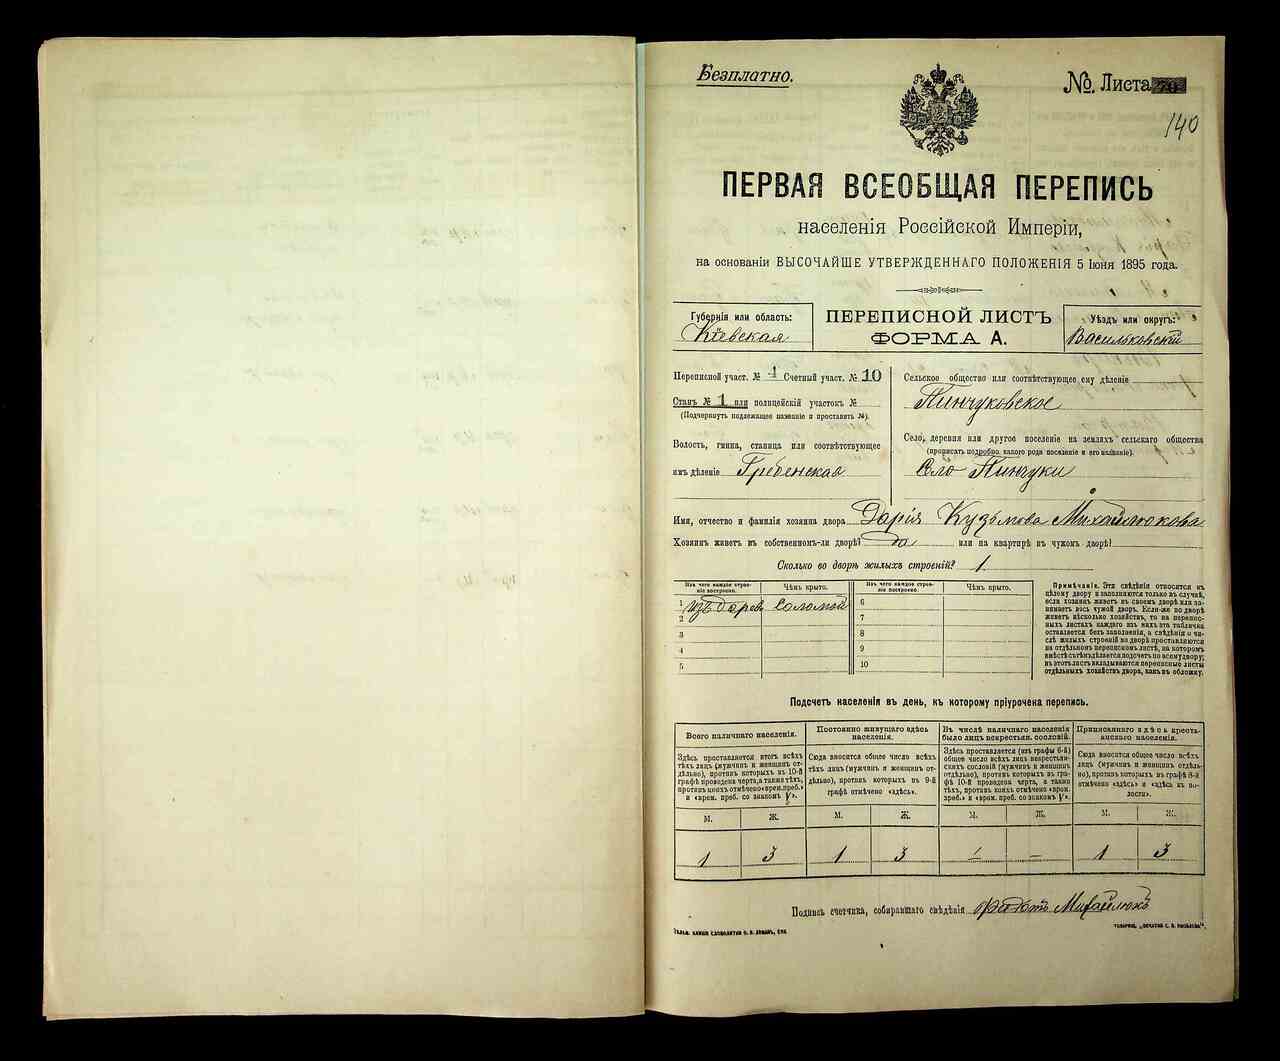 Безплатно.
№. Листа 70
140
ПЕРВАЯ ВСЕОБЩАЯ ПЕРЕПИСЬ
населенія Россійской Имперіи,
на основаніи ВЫСОЧАЙШЕ УТВЕРЖДЕННАГО ПОЛОЖЕНІЯ 5 Іюня 1895 года.
Губернія или область:
Кіевская
ПЕРЕПИСНОЙ ЛИСТЪ
ФОРМА А.
Уѣздъ или округъ:
Васильковскій
Переписной участ. № 1 Счетный участ. № 10
Станъ № 1 или полицейскій участокъ №
(Подчеркнуть подлежащее названіе и проставить №).
Волость, гмина, станица или соотвѣтствующее
имъ дѣленіе Гребенская
Сельское общество или соотвѣтствующее ему дѣленіе
Пинчуковское
Село, деревня или другое поселеніе на земляхъ сельскаго общества
(прописать подробно, какого рода поселеніе и его названіе).
Село Пинчуки
Имя, отчество и фамилія хозяина двора Дарія Кузьмова Михайлюкова
Хозяинъ живетъ въ собственномъ-ли дворѣ? да или на квартирѣ въ чужомъ дворѣ?
Сколько во дворѣ жилыхъ строеній? 1.
Изъ чего каждое строе-
ніе построено.
Чѣмъ крыто.
1 изъ дерев Соломой
2
3
4
5
Изъ чего каждое строе-
ніе построено.
Чѣмъ крыто.
6
7
8
9
10
Примѣчаніе. Эти свѣдѣнія относятся къ
цѣлому двору и заполняются только въ случаѣ,
если хозяинъ живетъ въ своемъ дворѣ или за-
нимаетъ весь чужой дворъ. Если-же во дворѣ
живетъ нѣсколько хозяйствъ, то на перепис-
ныхъ листахъ каждаго изъ нихъ эта табличка
оставляется безъ заполненія, а свѣдѣнія о чи-
слѣ жилыхъ строеній во дворѣ проставляются
на отдѣльномъ переписномъ листѣ, на которомъ
вмѣстѣ съ тѣмъ дѣлается подсчетъ по всему двору;
въ этотъ листъ вкладываются переписные листы
отдѣльныхъ хозяйствъ двора, какъ въ обложку.
Подсчетъ населенія въ день, къ которому пріурочена перепись.
Всего наличнаго населенія.
Здѣсь проставляется итогъ всѣхъ
тѣхъ лицъ (мужчинъ и женщинъ от-
дѣльно), противъ которыхъ въ 10-й
графѣ проведена черта, а также тѣхъ,
противъ коихъ отмѣчено «врем. преб.»
и «врем. преб. со знакомъ V».
Постоянно живущаго здѣсь
населенія.
Сюда вносится общее число всѣхъ
тѣхъ лицъ (мужчинъ и женщинъ от-
дѣльно), противъ которыхъ въ 9-й
графѣ отмѣчено «здѣсь».
Въ числѣ наличнаго населенія
было лицъ некрестьян. сословій.
Здѣсь проставляется (изъ графы 6-й)
общее число всѣхъ лицъ некрестьян-
скихъ сословій (мужчинъ и женщинъ
отдѣльно), противъ которыхъ въ гра-
фѣ 10-й проведена черта, а также
тѣхъ, противъ коихъ отмѣчено «врем.
преб.» и «врем. преб. со знакомъ V».
Приписаннаго здѣсь кресть-
янскаго населенія.
Сюда вносится общее число всѣхъ
лицъ (мужчинъ и женщинъ отдѣль-
но), противъ которыхъ въ графѣ 8-й
отмѣчено «здѣсь» и «здѣсь въ во-
лости».
М. Ж. М. Ж. М. Ж. М. Ж.
1 3 1 3 - - 1 3
Подпись счетчика, собиравшаго свѣдѣнія Михайлюкъ